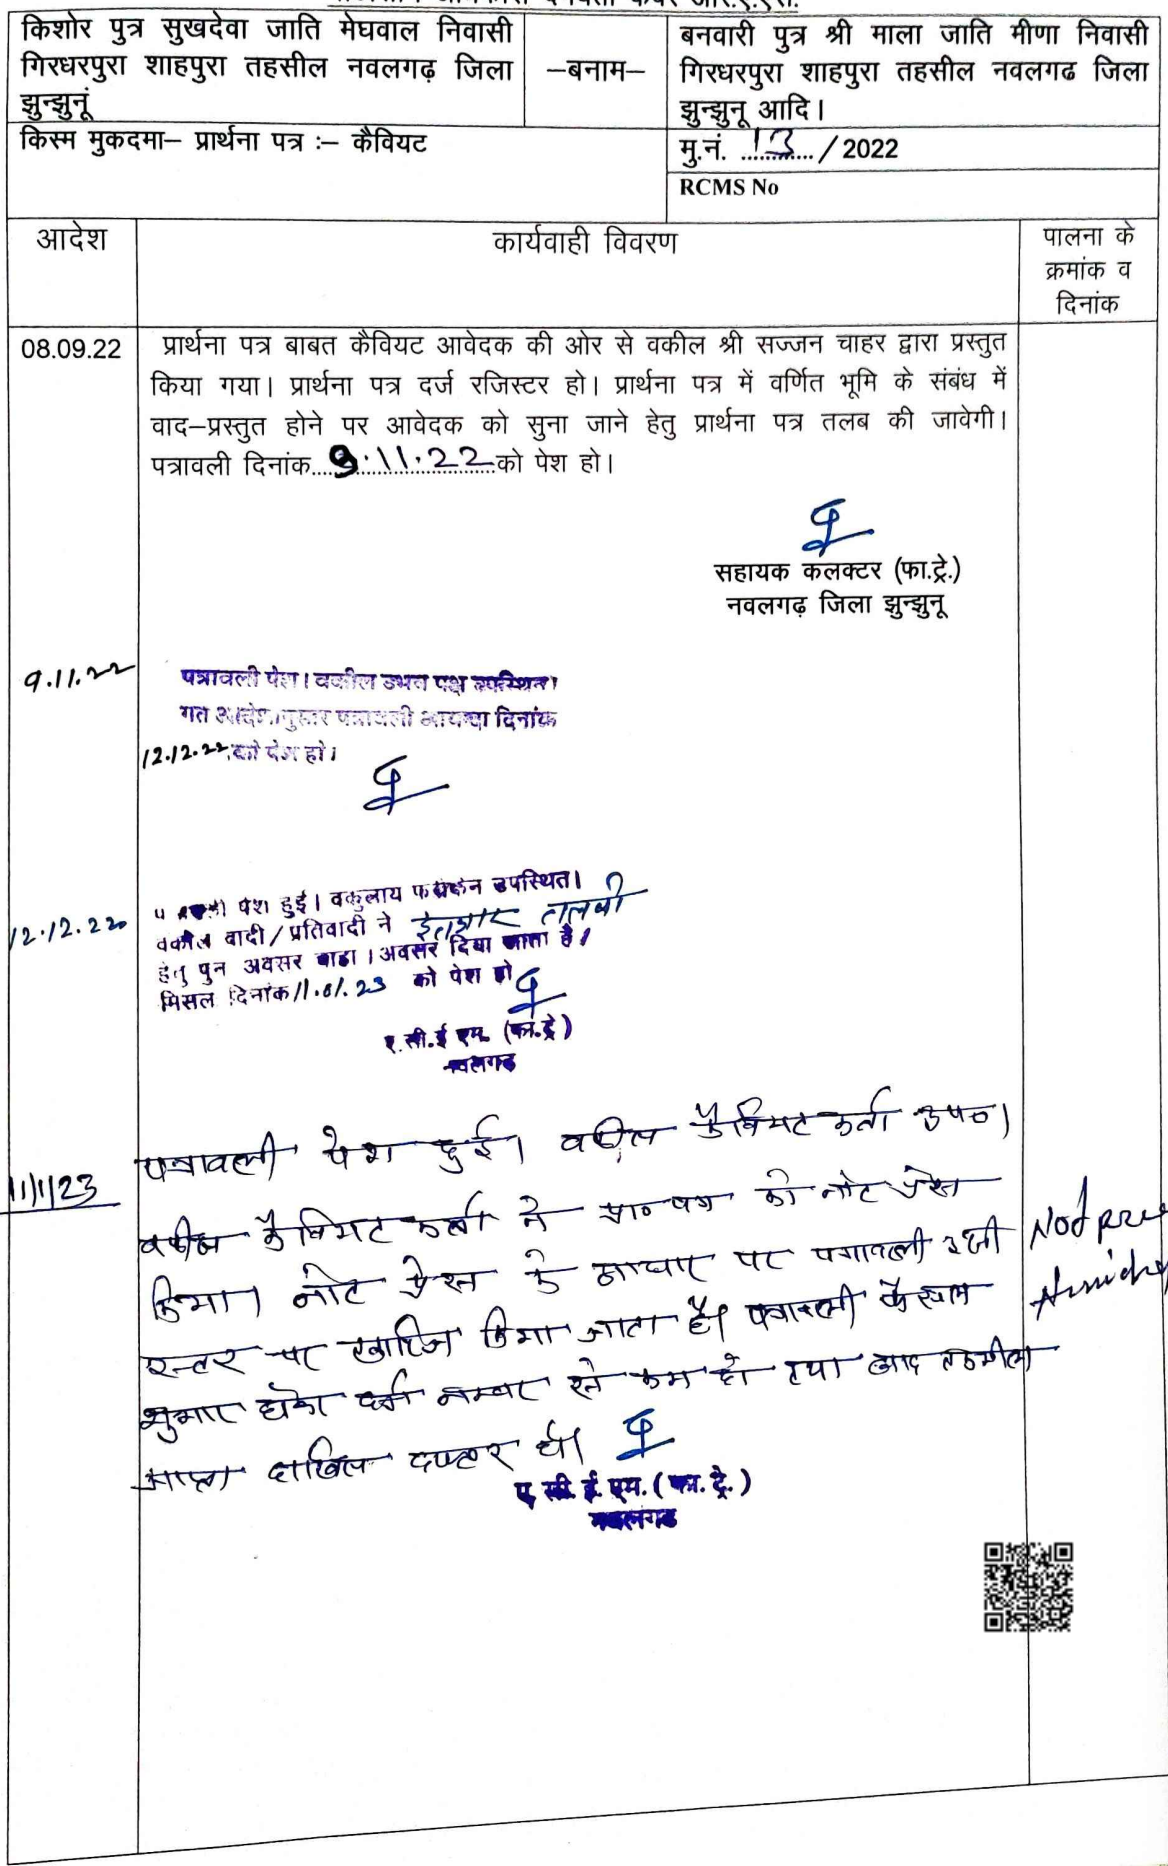 किशोर पुत्र सुखदेवा जाति मेघवाल निवासी
गिरधरपुरा शाहपुरा तहसील नवलगढ़ जिला
झुन्झुनूं
–बनाम–
बनवारी पुत्र श्री माला जाति मीणा निवासी
गिरधरपुरा शाहपुरा तहसील नवलगढ जिला
झुन्झुनू आदि।
किस्म मुकदमा– प्रार्थना पत्र :– कैवियट
मु.नं. 13 / 2022
RCMS No
आदेश
कार्यवाही विवरण
पालना के
क्रमांक व
दिनांक
08.09.22
प्रार्थना पत्र बाबत कैवियट आवेदक की ओर से वकील श्री सज्जन चाहर द्वारा प्रस्तुत
किया गया। प्रार्थना पत्र दर्ज रजिस्टर हो। प्रार्थना पत्र में वर्णित भूमि के संबंध में
वाद–प्रस्तुत होने पर आवेदक को सुना जाने हेतु प्रार्थना पत्र तलब की जावेगी।
पत्रावली दिनांक 9.11.22 को पेश हो।
सहायक कलक्टर (फा.ट्रे.)
नवलगढ़ जिला झुन्झुनू
9.11.22
पत्रावली पेश। वकील उभय पक्ष उपस्थित।
गत आदेशानुसार पत्रावली आयन्दा दिनांक
12.12.22 को पेश हो।
12.12.22
पेश हुई। वकुलाय फरीकेन उपस्थित।
वकील वादी/प्रतिवादी ने इन्तजार तलबी
हेतु पुन अवसर चाहा। अवसर दिया जाता है।
मिसल दिनांक 11.01.23 को पेश हो
ए.सी.ई.एम. (फा.ट्रे)
नवलगढ
11/1/23
पत्रावली पेश हुई। वकील कैवियट कर्ता उप०।
वकील कैवियट कर्ता ने प्रा० पत्र को नोट प्रेस
किया। नोट प्रेस के आधार पर पत्रावली इसी
स्तर पर खारिज किया जाता है। पत्रावली फैसल
शुमार होकर दर्ज नम्बर से कम हो तथा बाद तकमील
दाखिल दफ्तर हो।
ए.सी.ई.एम.(फा.ट्रे.)
नवलगढ
Not